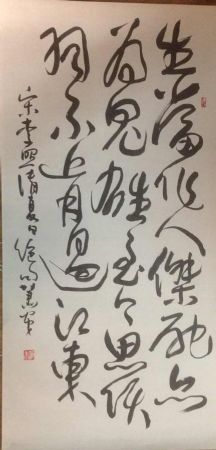 生當作人傑死亦
為鬼雄至今思項
羽不肯過江東
宋李照清夏日絕句